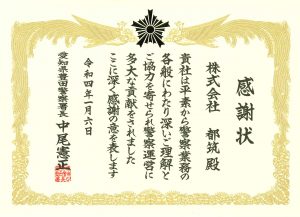 感謝状
株式会社 都筑 殿
貴社は平素から警察業務の
各般にわたり深いご理解と
ご協力を寄せられ警察運営に
多大な貢献をされました
ここに深く感謝の意を表します
令和四年一月六日
愛知県豊田警察署長 中尾憲正